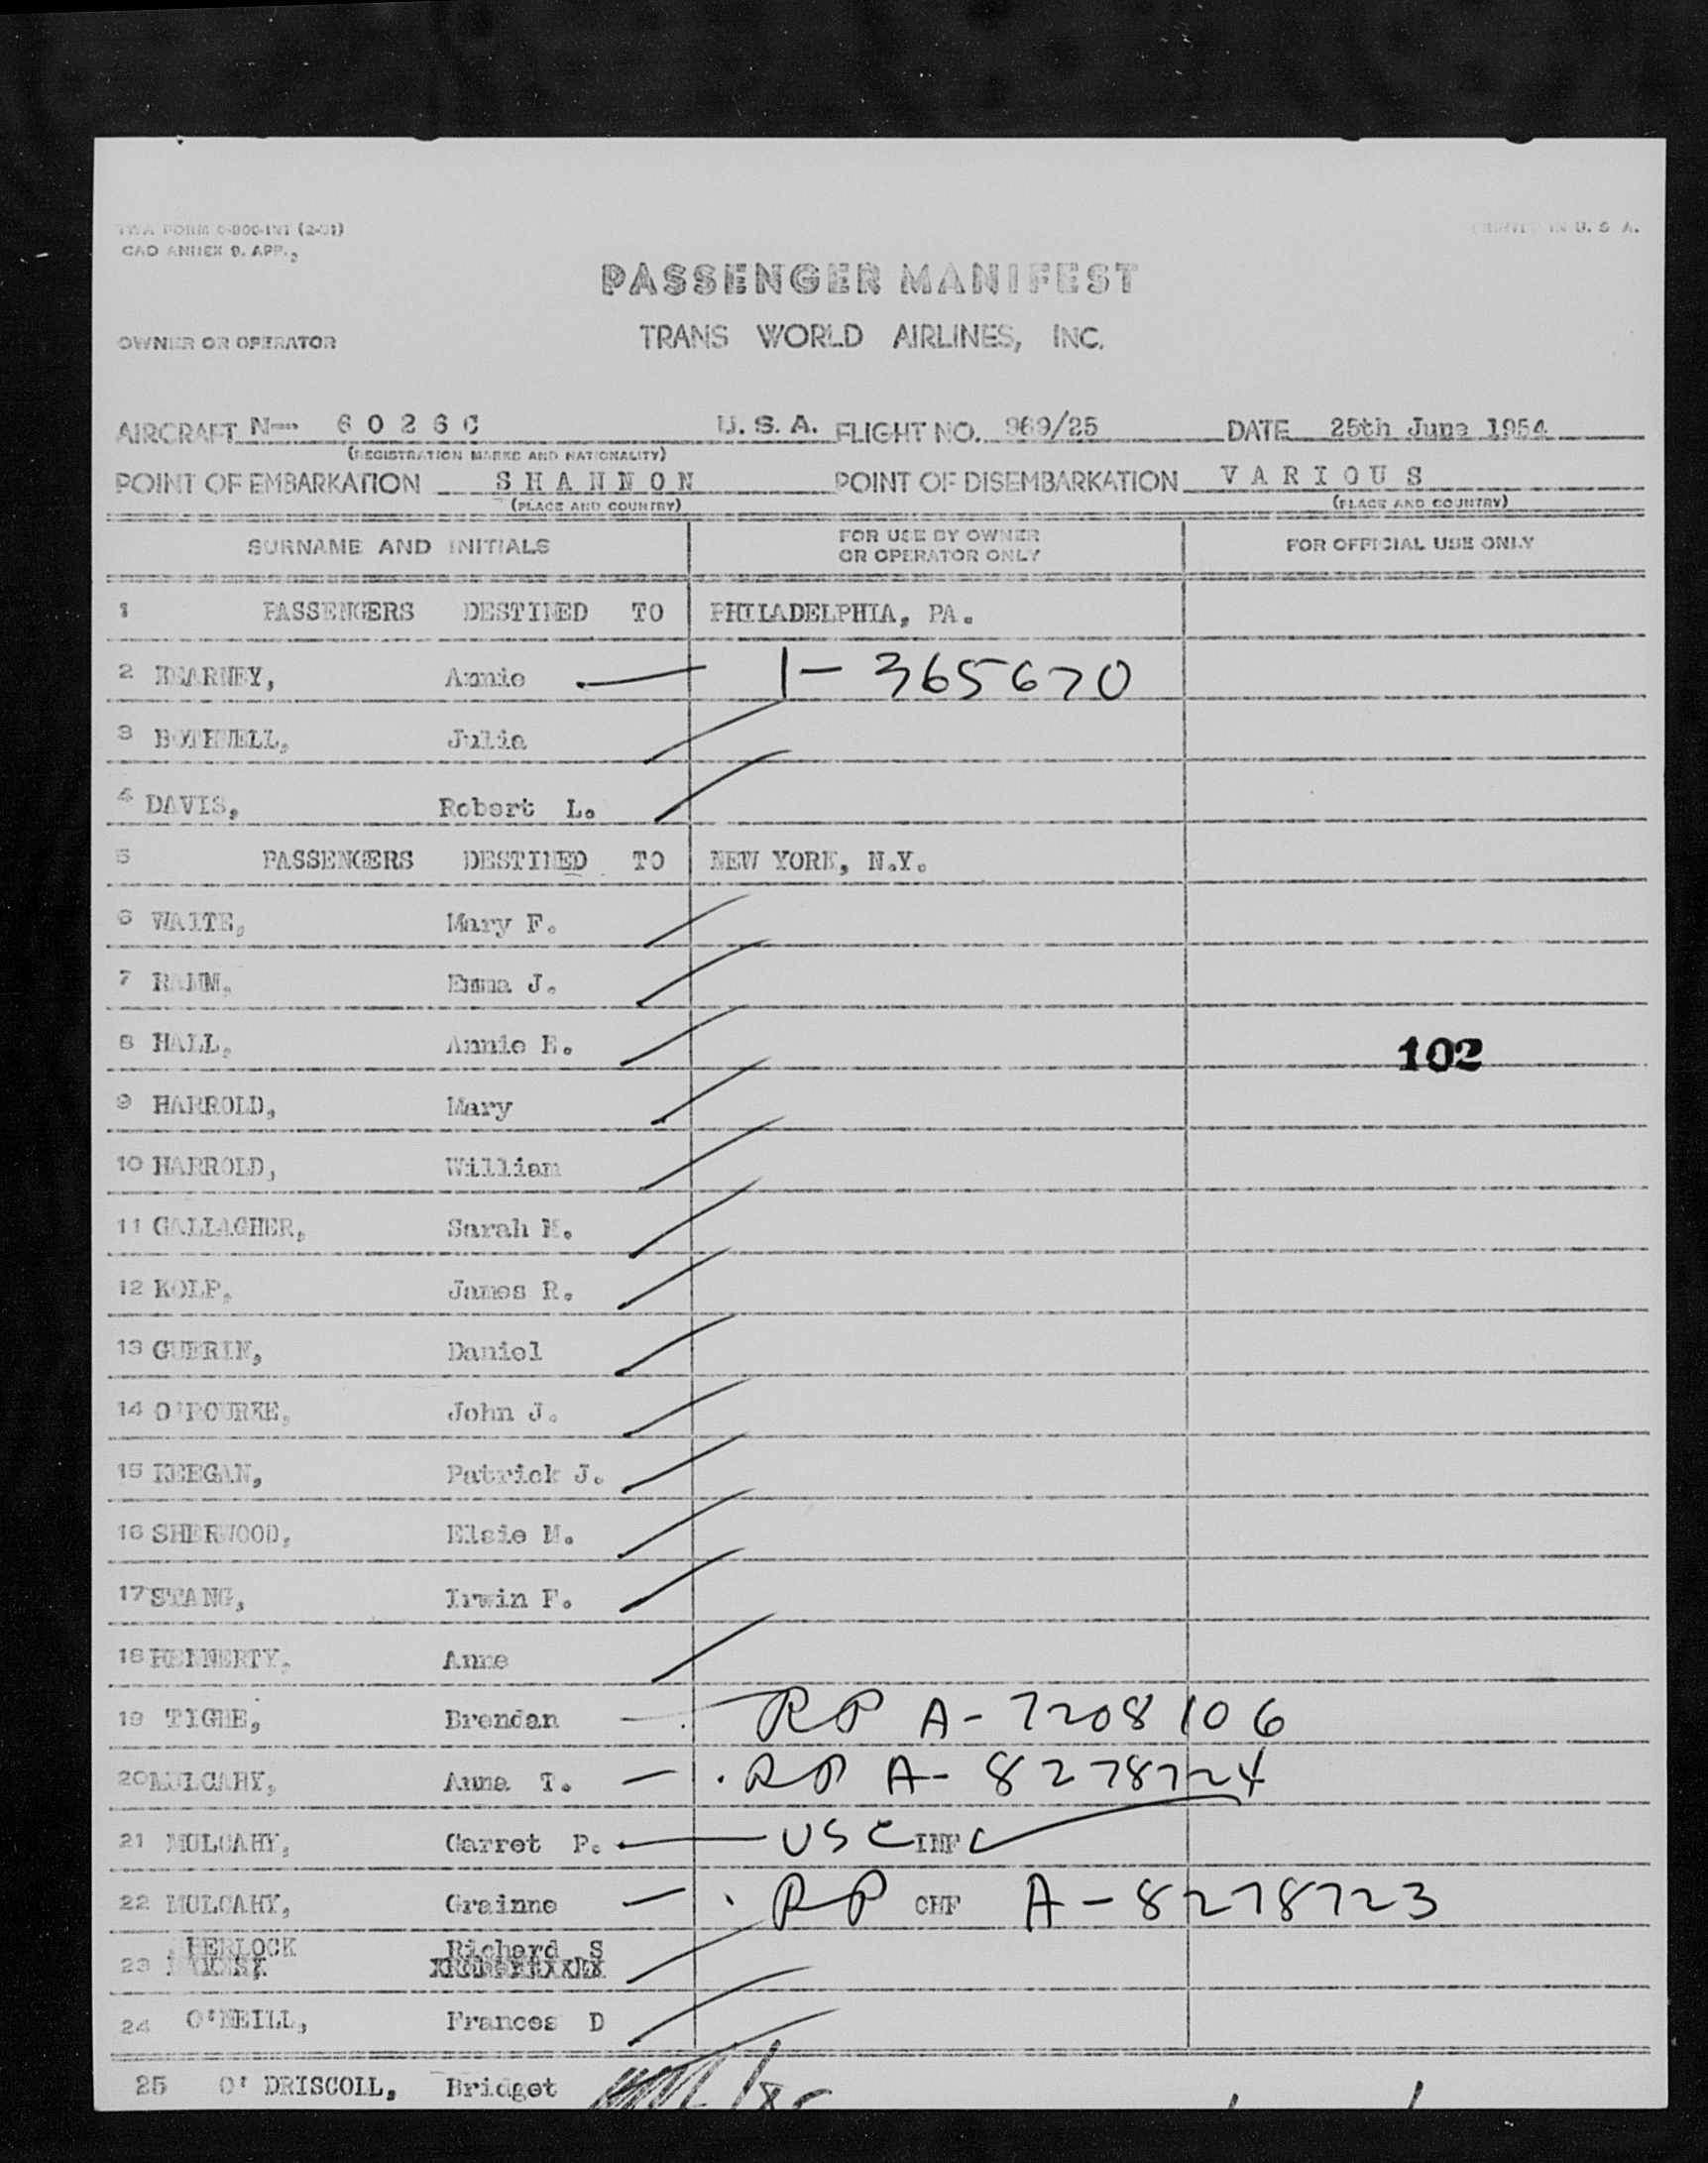 TWA FORM
CAO ANNEX 9. APP.,
IN U. S. A.
PASSENGER MANIFEST
OWNER OR OPERATOR TRANS WORLD AIRLINES, INC.
AIRCRAFT N-- 6 0 2 6 C U.S.A. FLIGHT NO. 969/25 DATE 25th June 1954
(REGISTRATION MARKS AND NATIONALITY)
POINT OF EMBARKATION S H A N N O N POINT OF DISEMBARKATION V A R I O U S
(PLACE AND COUNTRY) (PLACE AND COUNTRY)
SURNAME AND INITIALS FOR USE BY OWNER OR OPERATOR ONLY FOR OFFICIAL USE ONLY
1 PASSENGERS DESTINED TO PHILADELPHIA, PA.
2 KEARNEY, Annie — 1-365670
3 BOTHWELL, Julia
4 DAVIS, Robert L.
5 PASSENGERS DESTINED TO NEW YORK, N.Y.
6 WAITE, Mary F.
7 Emma J.
8 HALL, Annie E. 102
9 HARROLD, Mary
10 HARROLD, William
11 GALLAGHER, Sarah M.
12 KOLP, James R.
13 GUERIN, Daniel
14 O'ROURKE, John J.
15 KEEGAN, Patrick J.
16 SHERWOOD, Elsie M.
17 STANG, Irwin F.
18 Anne
19 TIGHE, Brendan — RP A-7208106
20 MULCAHY, Anna T. — RP A-8278724
21 MULCAHY, Garret P. — USC INF
22 MULCAHY, Grainne — RP CHF A-8278723
23 Richard S
24 O'NEILL, Frances D
25 O' DRISCOLL, Bridget